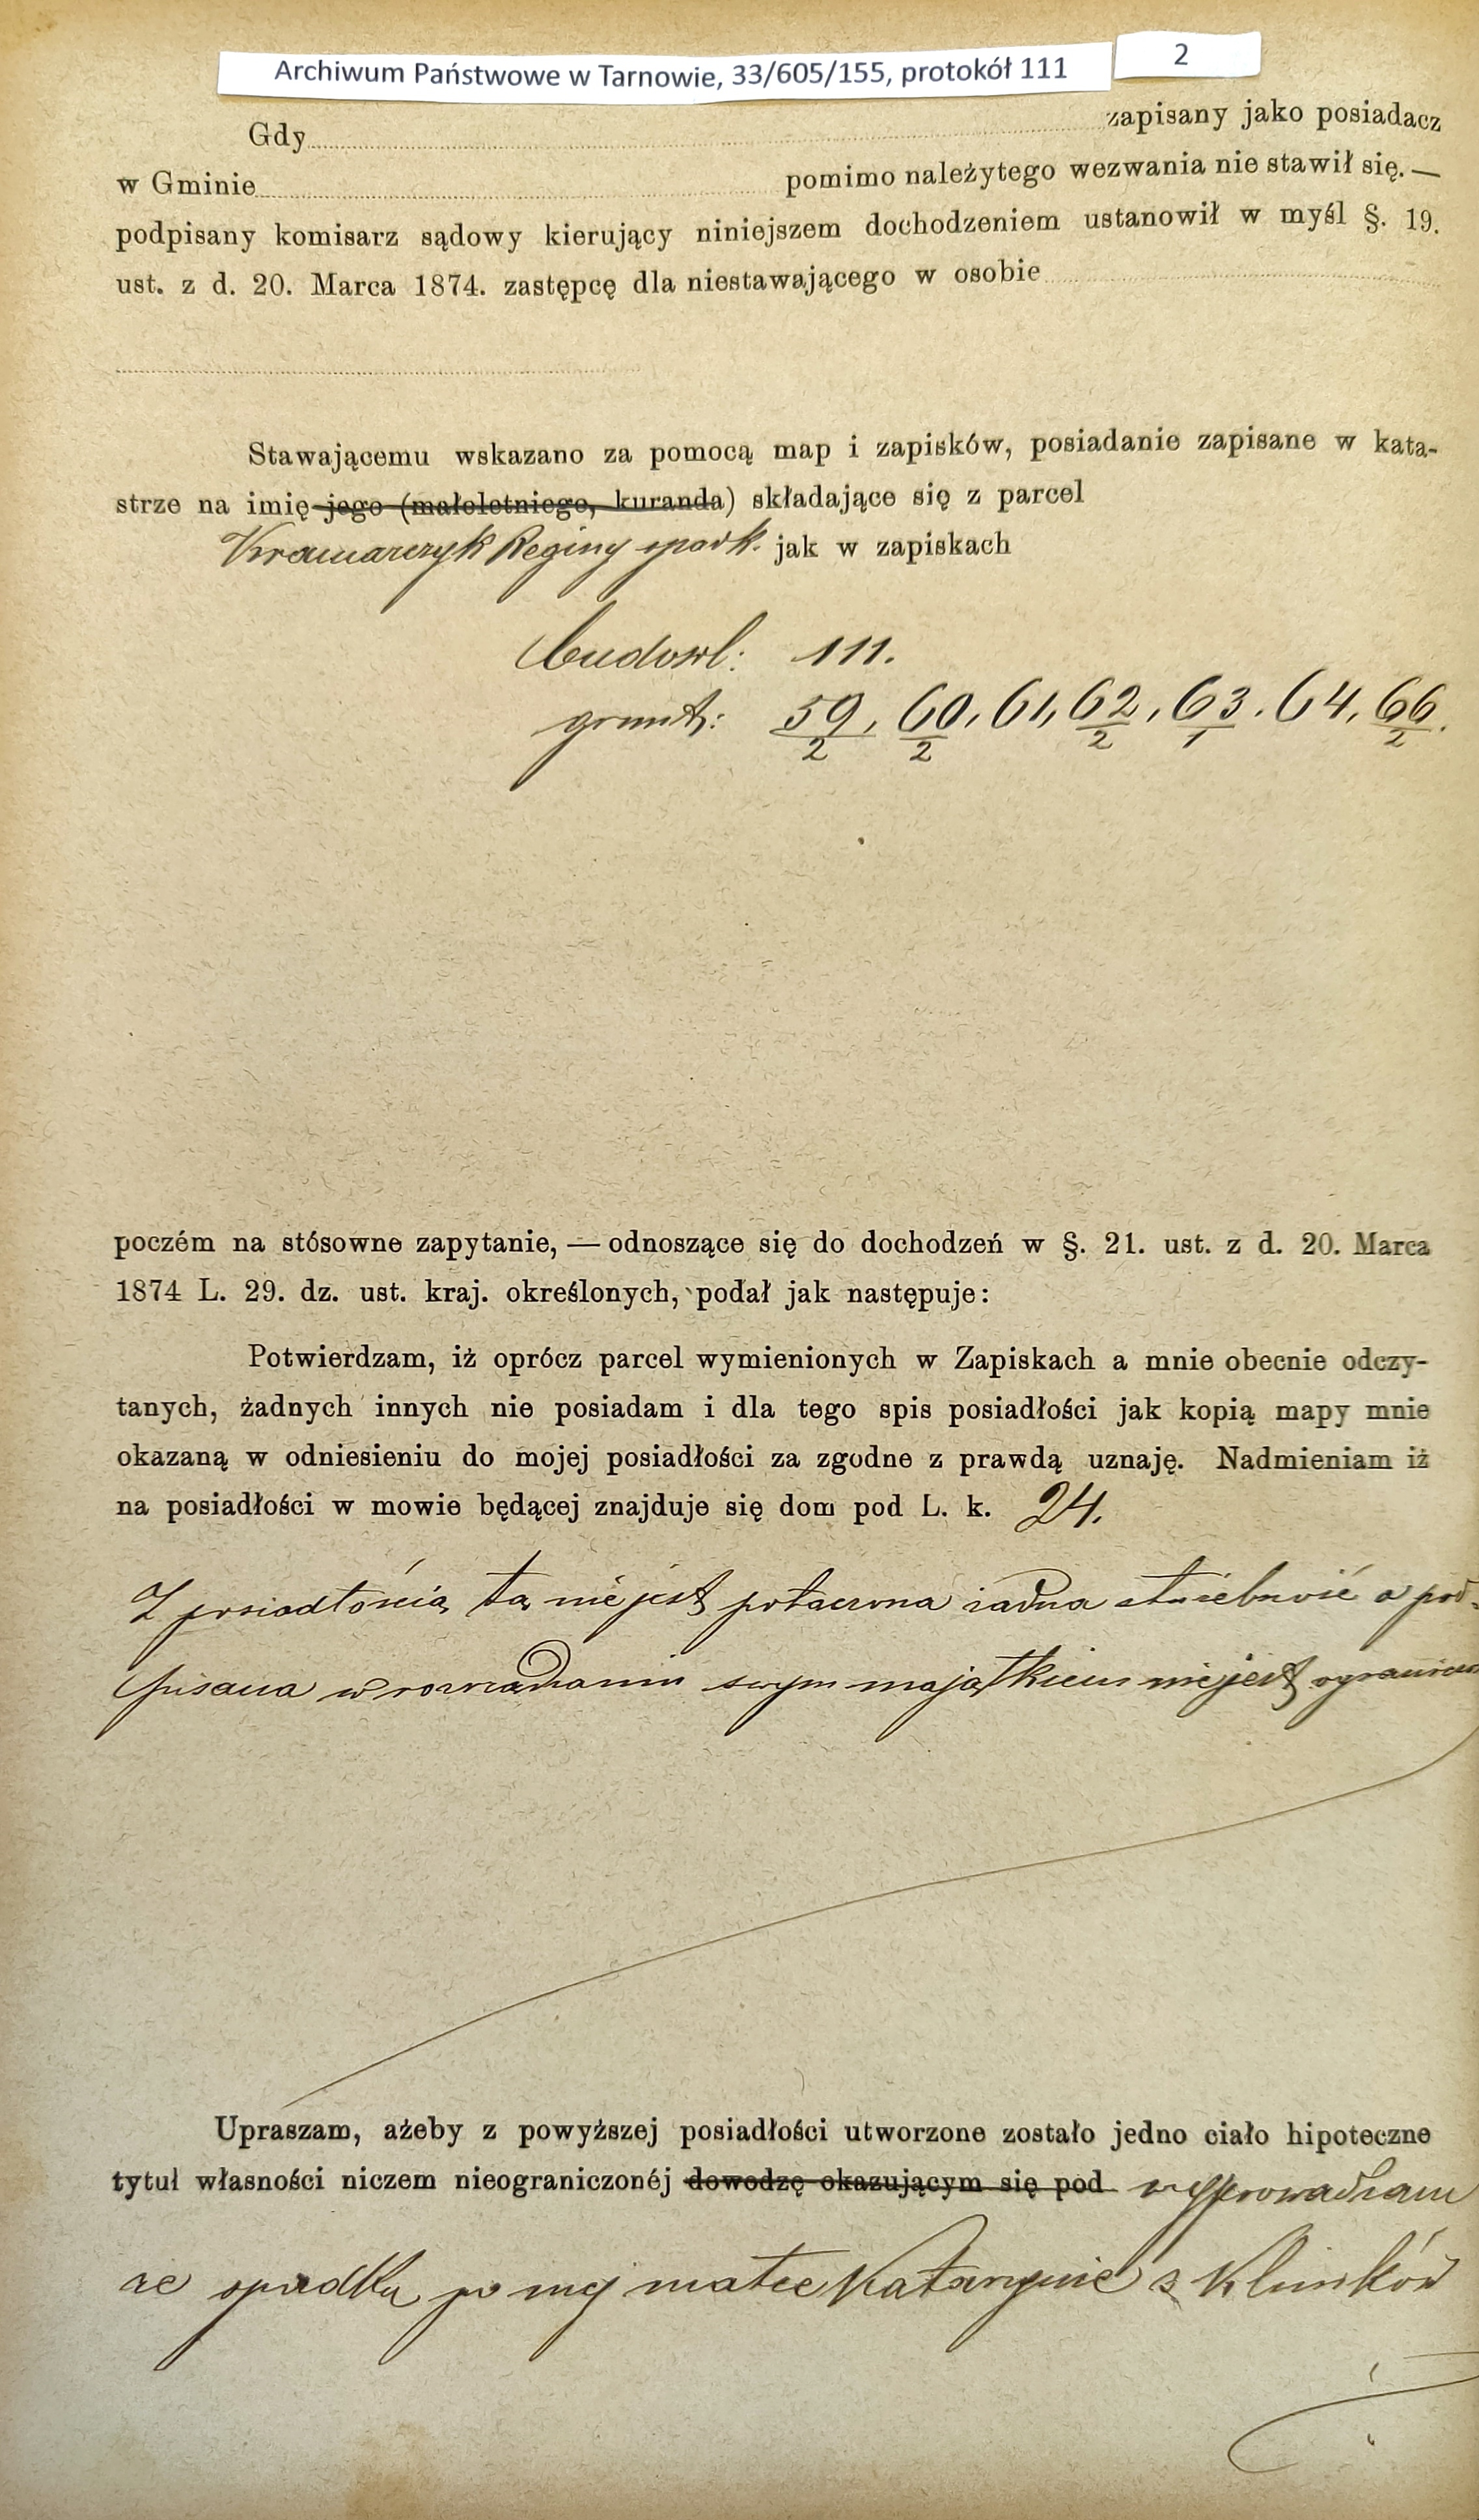 Archiwum Państwowe w Tarnowie, 33/605/155, protokół 111
2
Gdy zapisany jako posiadacz
w Gminie pomimo należytego wezwania nie stawił się. —
podpisany komisarz sądowy kierujący niniejszem dochodzeniem ustanowił w myśl §. 19.
ust. z d. 20. Marca 1874. zastępcę dla niestawającego w osobie
Stawającemu wskazano za pomocą map i zapisków, posiadanie zapisane w kata-
strze na imię jego (małoletniego, kuranda) składające się z parcel
Kramarczyk Reginy spadk. jak w zapiskach
budowl: 111.
grunt: 59/2, 60/2, 61, 62/2, 63/1, 64, 66/2.
poczém na stósowne zapytanie, — odnoszące się do dochodzeń w §. 21. ust. z d. 20. Marca
1874 L. 29. dz. ust. kraj. określonych, podał jak następuje:
Potwierdzam, iż oprócz parcel wymienionych w Zapiskach a mnie obecnie odczy-
tanych, żadnych innych nie posiadam i dla tego spis posiadłości jak kopią mapy mnie
okazaną w odniesieniu do mojej posiadłości za zgodne z prawdą uznaję. Nadmieniam iż
na posiadłości w mowie będącej znajduje się dom pod L. k. 24.
Z posiadłością tą nie jest połączona żadna służebność a pod-
pisana w rozrządzaniu swym majątkiem nie jest ograniczon
Upraszam, ażeby z powyższej posiadłości utworzone zostało jedno ciało hipoteczne
tytuł własności niczem nieograniczonéj dowodzę okazującym się pod wyprowadzam
ze spadku po mej matce Katarzynie z Klimków